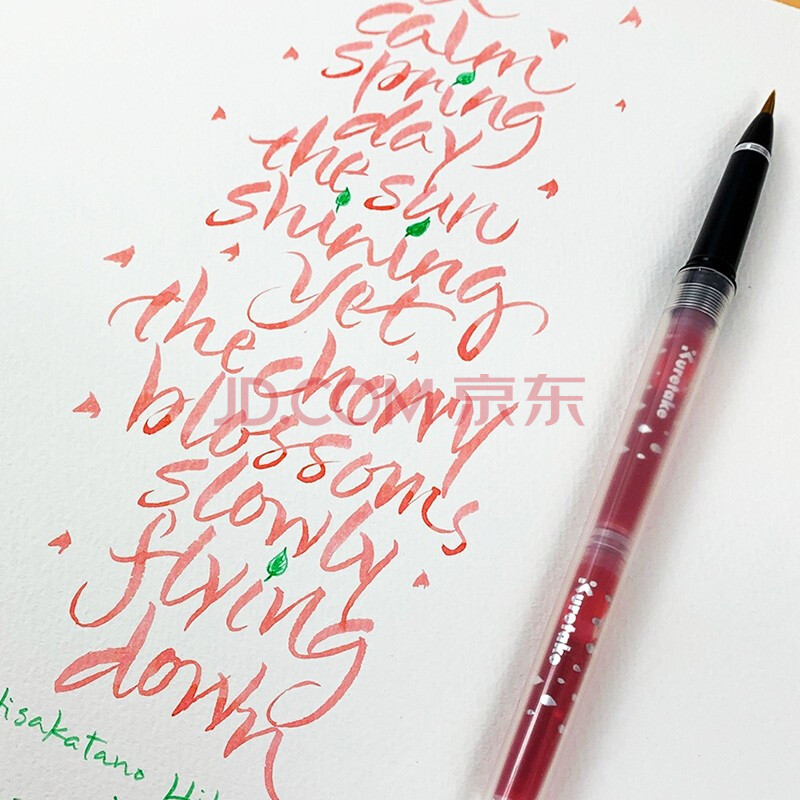 calm
spring
day
the sun
shining
yet
the cherry
blossoms
slowly
flying
down
Hisakatano
Kuretake
Kuretake
JD.COM 京东